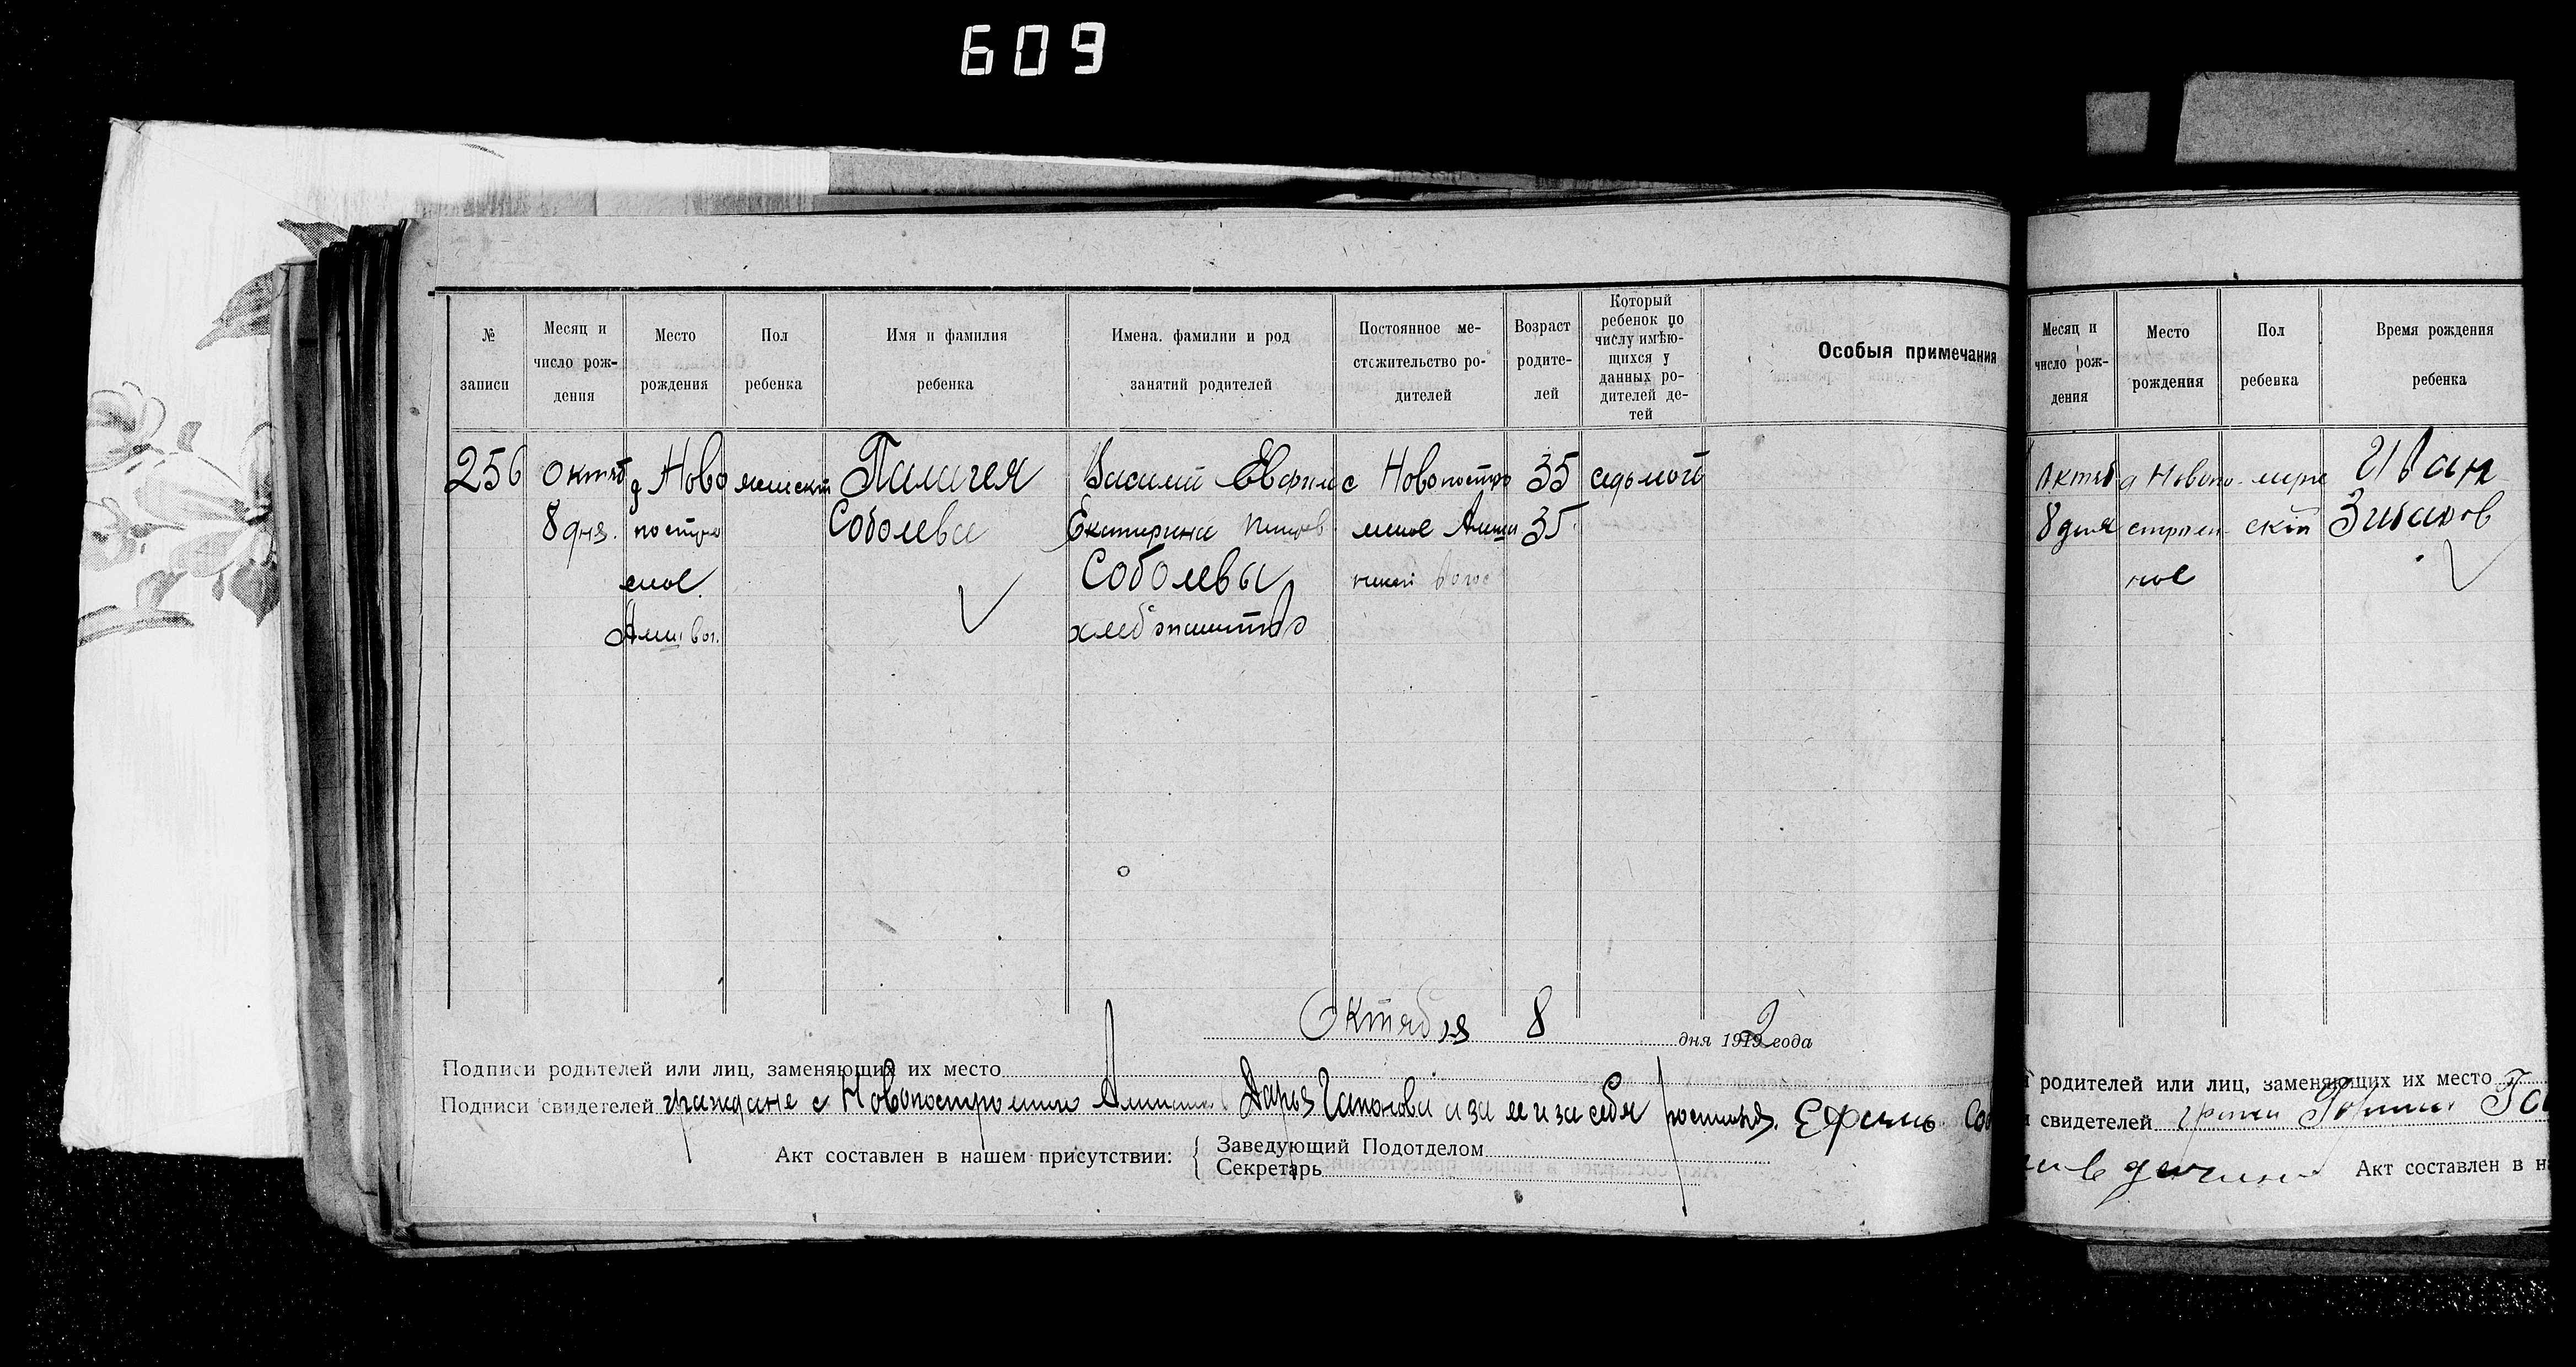 609
№ записи
Месяц и число рождения
Место рождения
Пол ребенка
Имя и фамилия ребенка
Имена. фамилии и род занятий родителей
Постоянное местожительство родителей
Возраст родителей
Который ребенок по числу имѣющихся у данных родителей детей
Особыя примечания
256 Октяб д Ново женский Палагея Василий Евфим с Новопостро 35 седьмой
8 дня. построе Соболева Екатерина 35
ное Соболевы
хлебопашество
Октября 8 дня 1919 2 года
Подписи родителей или лиц, заменяющих их место
Подписи свидетелей граждане с Новопостроенно Дарья Гапонова а за ее и за себя Ефимъ Соб
Акт составлен в нашем присутствии:
Заведующий Подотделом
Секретарь
Месяц и число рождения
Место рождения
Пол ребенка
Время рождения ребенка
Октяб д Новопо- Иван
8 дня строен- ской Зибаров
ное
родителей или лиц, заменяющих их место
свидетелей
Акт составлен в н